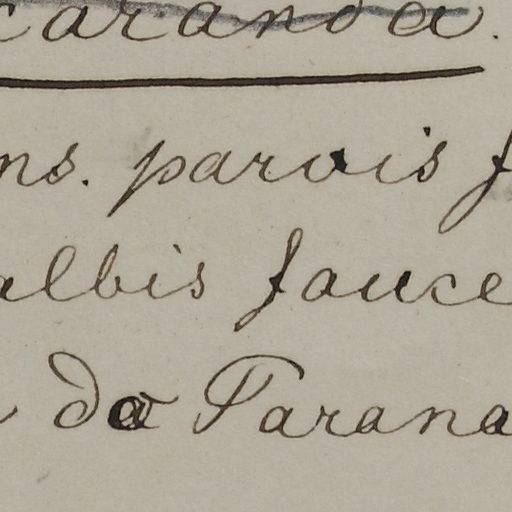 caranda.
ns. parvis f
albis fauce
da Parana